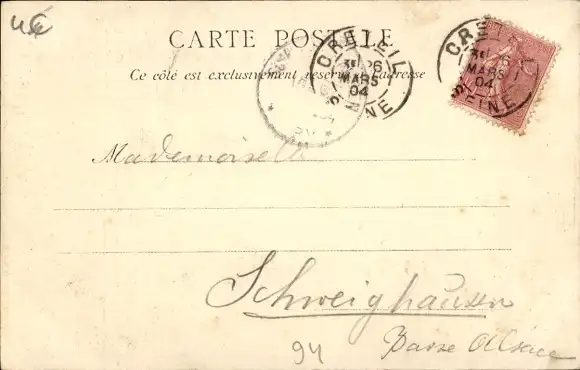 CARTE POSTALE
Ce côté est exclusivement réservé à l'adresse
CRETEIL
26
MARS
04
SEINE
CRETEIL
6
MARS
04
SEINE
Mademoiselle
Schweighausen
Basse Alsace
94